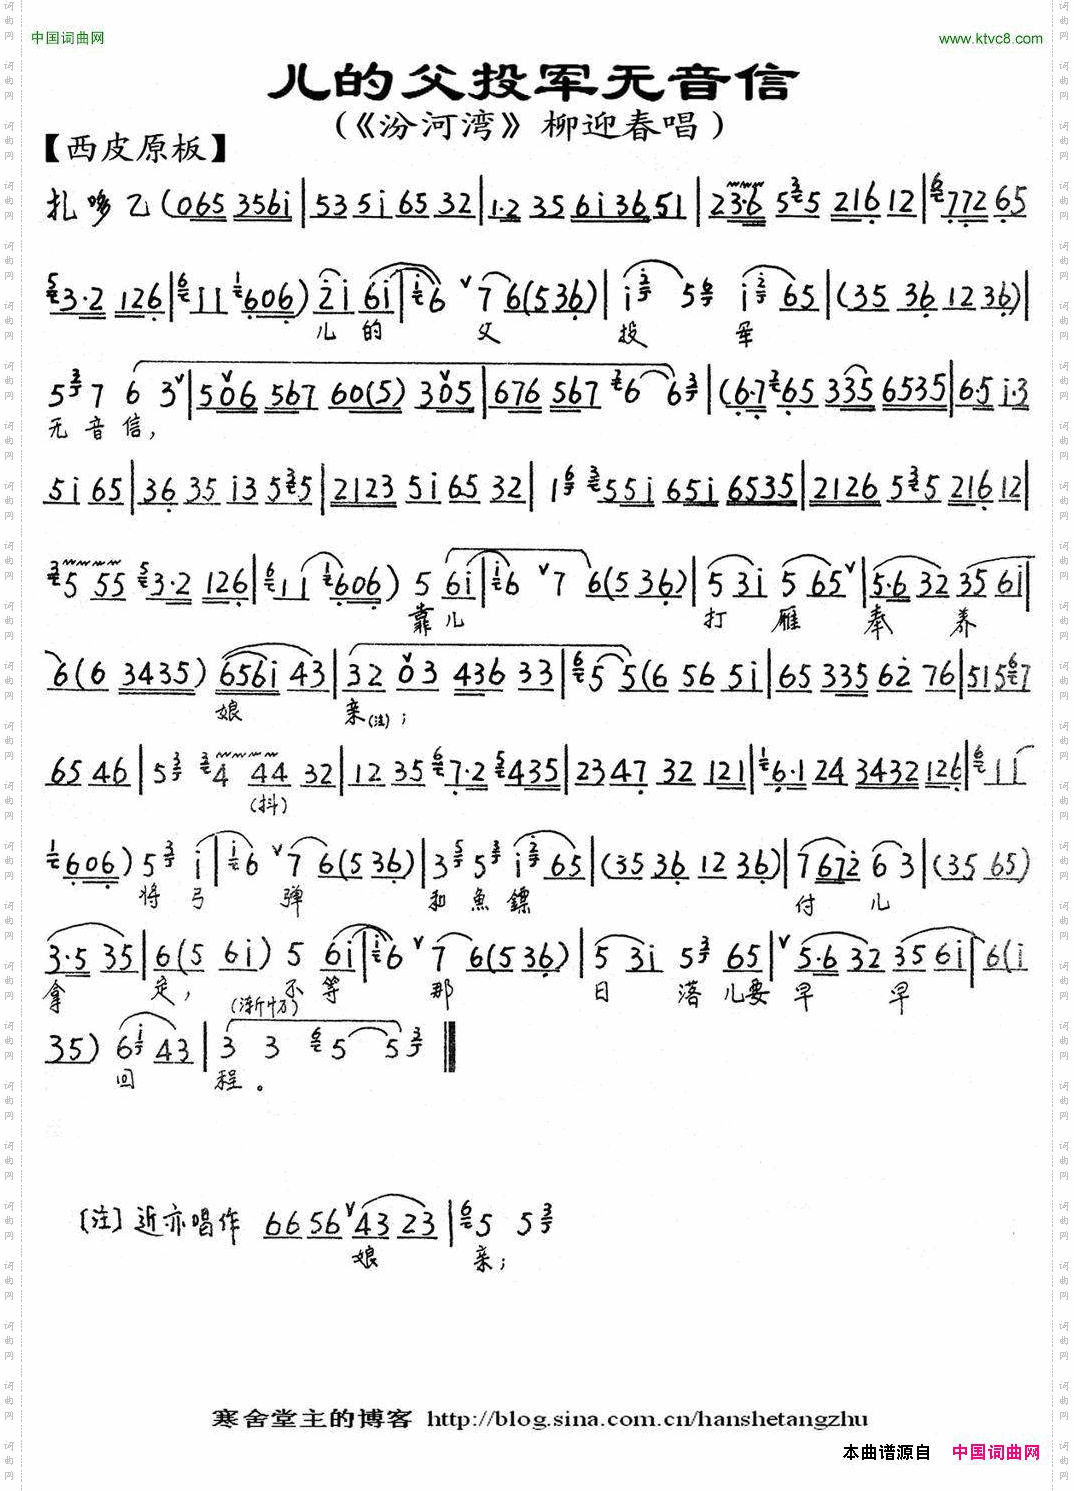 中国词曲网
www.ktvc8.com
儿的父投军无音信
(《汾河湾》柳迎春唱)
【西皮原板】
扎哆乙(065 356i|535i 65 32|1·2 35 6i36 51|23·6 5 5 216 12|772 65
3·2 126|11 606) 2i 6i|6 7 6(5 36)|i 5 i 65|(35 36 12 36)|
儿 的 父 投 军
5 7 6 3|506 567 60(5) 305|676 567 6 6|(6·7 65 335 6535|6·5 i·3
无 音 信,
5i 65|36 35 i3 5 5|2123 5i 65 32|1 55i 65i 6535|2126 5 5 216 12|
5 55 3·2 126|11 606) 5 6i|6 7 6(5 36)|5 3i 5 65|5·6 32 35 6i|
靠 儿 打 雁 奉 养
6(6 3435) 656i 43|32 03 436 33|5 5(6 56 5i|65 335 62 76|515 7
娘 亲(注);
65 46|5 4 44 32|12 35 7·2 435|2347 32 121|6·1 24 3432 126|11
(抖)
606) 5 i|6 7 6(5 36)|3 5 i 65|(35 36 12 36)|7 672 6 3|(35 65)
将 弓 弹 和 魚 鏢 付 儿
3·5 35|6(5 6i) 5 6i|6 7 6(5 36)|5 3i 5 65|5·6 32 35 6i|6(i
拿 定, 不 等 那 日 落 儿 要 早 早
(渐切)
35) 6 43|3 3 5 5
回 程。
[注]近亦唱作 66 56 43 23|5 5
娘 亲;
寒舍堂主的博客 http://blog.sina.com.cn/hanshetangzhu
本曲谱源自 中国词曲网